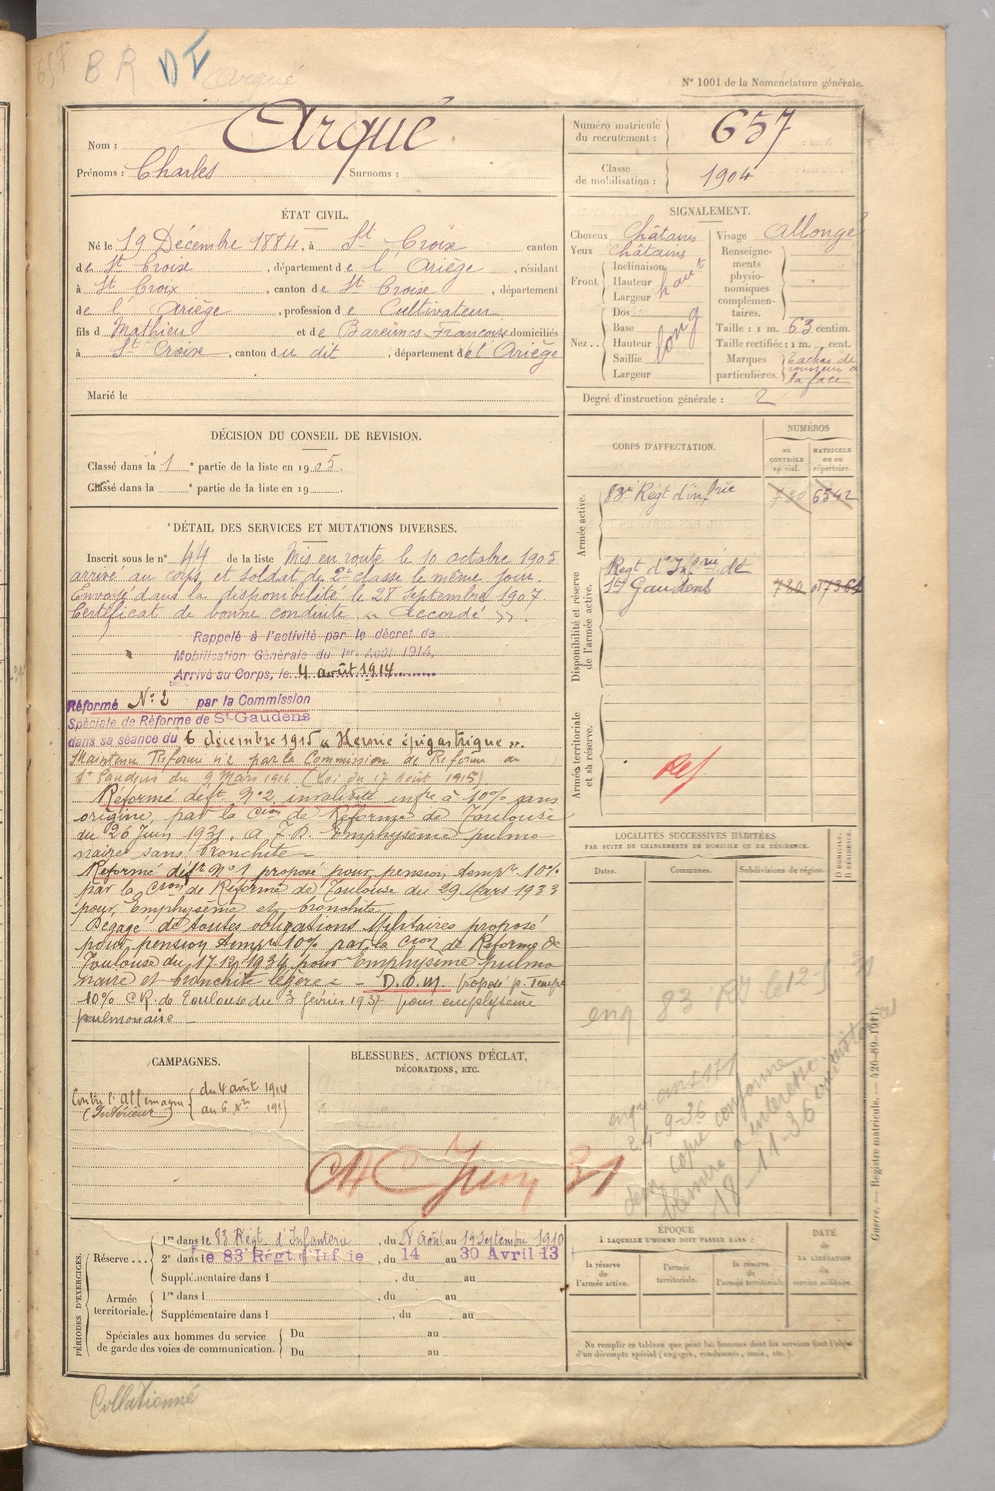 BR DF
Arqué
N° 1001 de la Nomenclature générale.
Nom : Arqué
Prénoms : Charles Surnoms :
Numéro matricule du recrutement : 657
Classe de mobilisation : 1904
ÉTAT CIVIL.
Né le 19 Décembre 1884, à St Croix canton
de St Croix, département de l'Ariège, résidant
à St Croix, canton de St Croix, département
de l'Ariège, profession de Cultivateur
fils d Mathieu et de Bareines Françoise domiciliés
à St Croix, canton du dit, département de l'Ariège
Marié le
SIGNALEMENT.
Cheveux Châtains Visage allongé
Yeux châtains
Front. Inclinaison Hauteur Largeur haut
Nez.. Dos Base Hauteur Saillie Largeur long
Renseignements physionomiques complémentaires.
Taille : 1 m. 63 centim.
Taille rectifiée : 1 m. cent.
Marques particulières. taches de rousseur à la face
Degré d'instruction générale : 2
DÉCISION DU CONSEIL DE REVISION.
Classé dans la 1e partie de la liste en 1905.
Classé dans la e partie de la liste en 19
CORPS D'AFFECTATION.
NUMÉROS
AU CONTRÔLE spécial.
MATRICULE OU AU répertoire.
Armée active.
83e Régt d'infrie 720 6542
Disponibilité et réserve de l'armée active.
Regt d'Infrie de
St Gaudens 720 017364
Armée territoriale et sa réserve.
Ref
DÉTAIL DES SERVICES ET MUTATIONS DIVERSES.
Inscrit sous le n° 44 de la liste Mis en route le 10 octobre 1905
arrivé au corps et soldat de 2e classe le même jour.
Envoyé dans la disponibilité le 28 Septembre 1907
Certificat de bonne conduite « Accordé ».
Rappelé à l'activité par le décret de
Mobilisation Générale du 1er Août 1914.
Arrivé au Corps, le 4 août 1914
Réformé N° 2 par la Commission
Spéciale de Réforme de St Gaudens
dans sa séance du 6 décembre 1915 « Hernie épigastrique ».
Maintenu Réformé n°2 par la Commission de Réforme de
St Gaudens du 9 Mars 1916 (Loi du 17 août 1915)
Réformé déft N°2 invalidité infre à 10% sans
origine, par la Cion de Réforme de Toulouse
du 26 Juin 1931. Emphysème pulmo
naire sans bronchite
Réformé déft N°1 proposé pour pension tempre 10%
par la Cion de Réforme de Toulouse du 29 Mars 1933
pour Emphysème et bronchite
Dégagé de toutes obligations Militaires proposé
pour pension tempre 10% par la Cion de Réforme de
Toulouse du 17 1934 pour Emphysème pulmo
naire et bronchite légère - D.O.M. proposé p. Tempre
10% C.R. de Toulouse du 3 février 1937 pour emphysème
pulmonaire
LOCALITÉS SUCCESSIVES HABITÉES
PAR SUITE DE CHANGEMENTS DE DOMICILE OU DE RÉSIDENCE.
Dates. Communes. Subdivisions de région. D DOMICILE, R RÉSIDENCE.
24-9-36
copie conforme
18-11-36
CAMPAGNES.
Contre l'Allemagne du 4 août 1914
(Intérieur) au 6 Xbre 1915
BLESSURES, ACTIONS D'ÉCLAT,
DÉCORATIONS, ETC.
Juin 31
PÉRIODES D'EXERCICES.
Réserve... 1re dans le 83 Régt d'Infanterie, du Août au 19 Septembre 1910
2e dans le 83e Régt d'Inf ie, du 14 au 30 Avril 13
Supplémentaire dans l , du au
Armée territoriale. 1re dans l , du au
Supplémentaire dans l , du au
Spéciales aux hommes du service de garde des voies de communication. Du au
Du au
ÉPOQUE
À LAQUELLE L'HOMME DOIT PASSER DANS :
la réserve de l'armée active.
l'armée territoriale.
la réserve de l'armée territoriale
DATE de la LIBÉRATION du service militaire.
Ne remplir ce tableau que pour les hommes dont les services font l'objet
d'un décompte spécial (engagés, condamnés, omis, etc.).
Guerre. — Registre matricule. — 426-89-1911.
Collationné